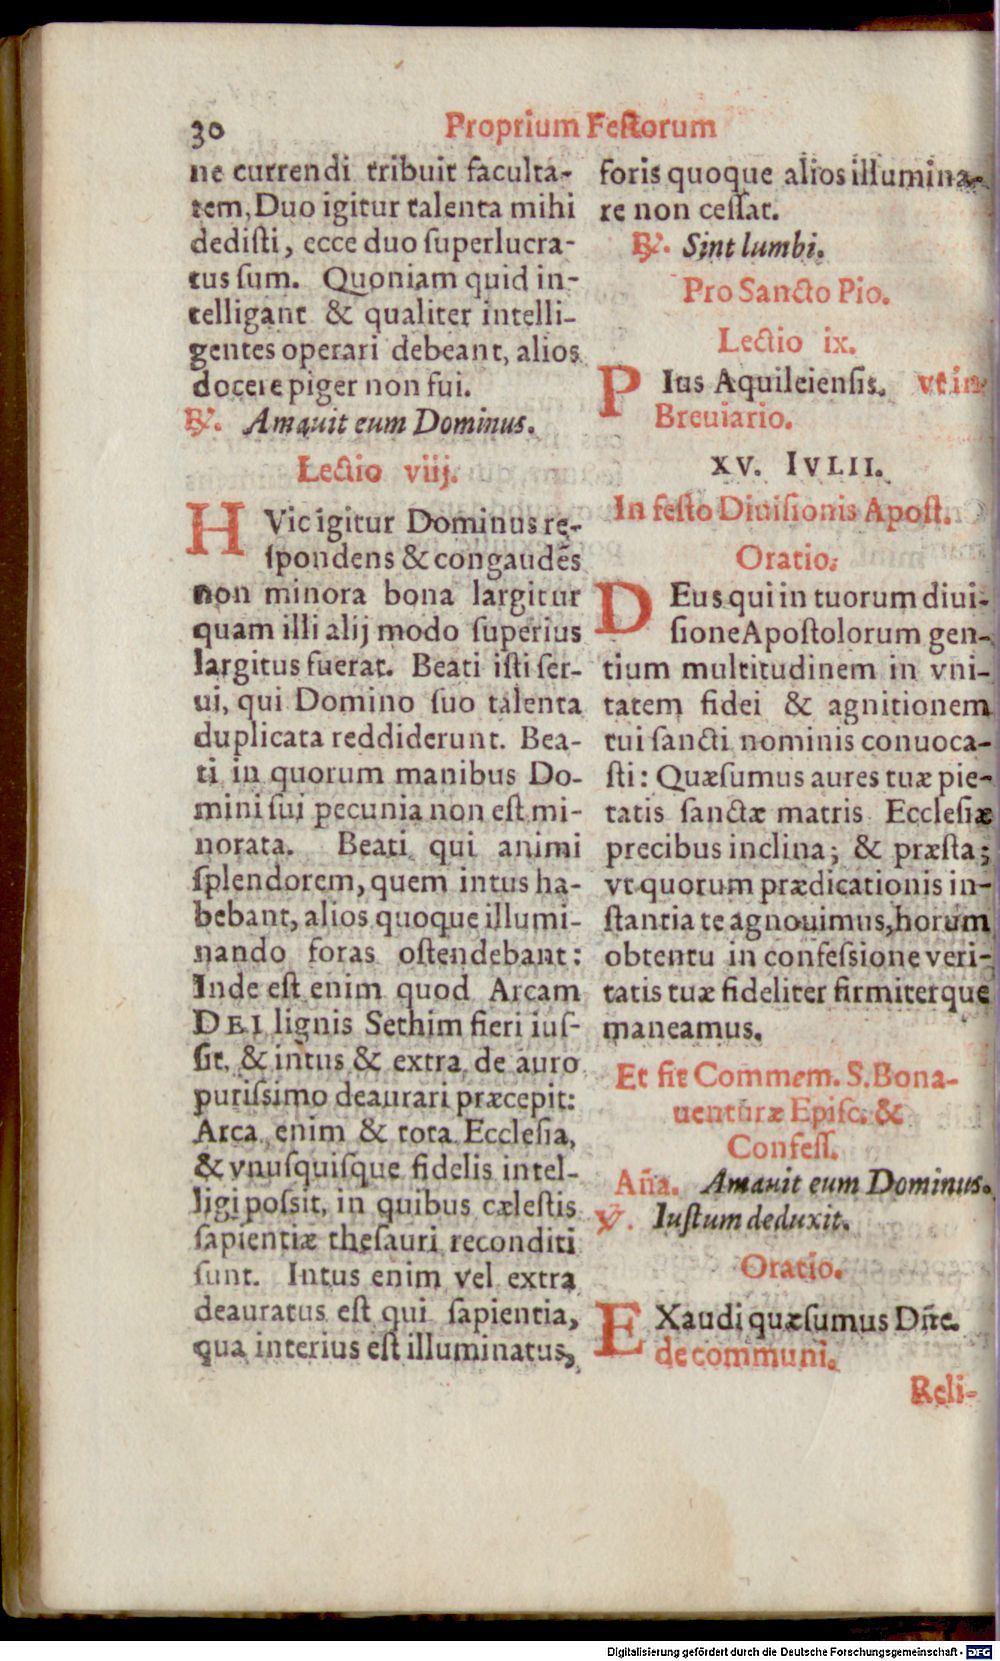 30
Proprium Festorum
ne currendi tribuit faculta-
tem, Duo igitur talenta mihi
dedisti, ecce duo superlucra-
tus sum. Quoniam quid in-
telligant & qualiter intelli-
gentes operari debeant, alios
docere piger non fui.
℟. Amauit eum Dominus.
Lectio viij.
HVic igitur Dominus re-
spondens & congaudẽs
non minora bona largitur
quam illi alij modo superius
largitus fuerat. Beati isti ser-
ui, qui Domino suo talenta
duplicata reddiderunt. Bea-
ti in quorum manibus Do-
mini sui pecunia non est mi-
norata. Beati qui animi
splendorem, quem intus ha-
bebant, alios quoque illumi-
nando foras ostendebant:
Inde est enim quod Arcam
DEI lignis Sethim fieri ius-
sit, & intus & extra de auro
purissimo deaurari præcepit:
Arca enim & tota Ecclesia,
& vnusquisque fidelis intel-
ligi possit, in quibus cælestis
sapientiæ thesauri reconditi
sunt. Intus enim vel extra
deauratus est qui sapientia,
qua interius est illuminatus,
foris quoque alios illumina-
re non cessat.
℟. Sint lumbi.
Pro Sancto Pio.
Lectio ix.
PIus Aquileiensis. vt in
Breuiario.
XV. IVLII.
In festo Diuisionis Apost.
Oratio.
DEus qui in tuorum diui-
sione Apostolorum gen-
tium multitudinem in vni-
tatem fidei & agnitionem
tui sancti nominis conuoca-
sti: Quæsumus aures tuæ pie-
tatis sanctæ matris Ecclesiæ
precibus inclina; & præsta;
vt quorum prædicationis in-
stantia te agnouimus, horum
obtentu in confessione veri-
tatis tuæ fideliter firmiterque
maneamus.
Et fit Commem. S. Bona-
uenturæ Episc. &
Confess.
Añа. Amauit eum Dominus.
℣. Iustum deduxit.
Oratio.
EXaudi quæsumus Dñe.
de communi.
Reli-
Digitalisierung gefördert durch die Deutsche Forschungsgemeinschaft - DFG